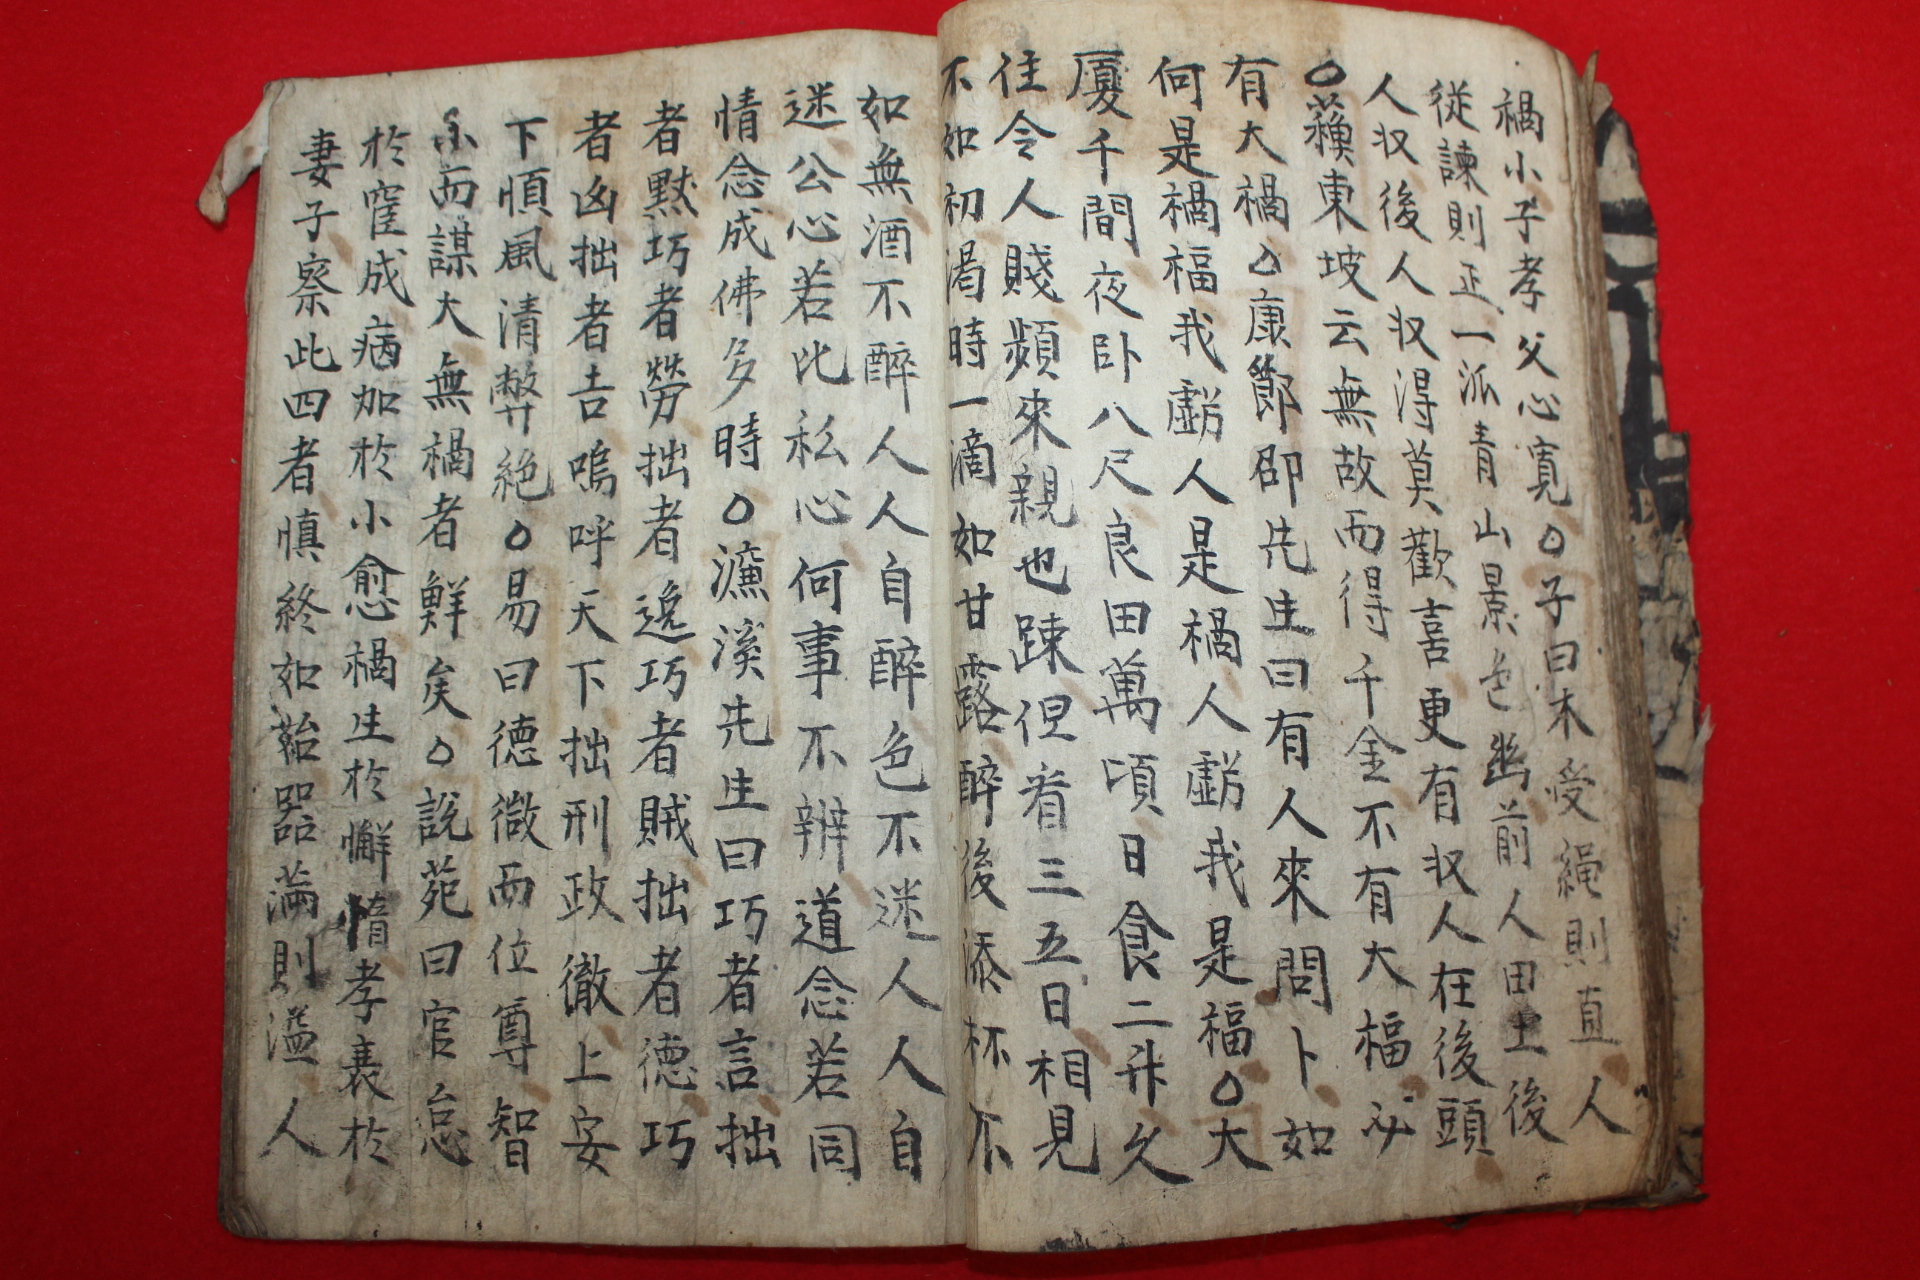 禍小子孝父心寬○子曰木受繩則直人
從諫則正一派靑山景色幽前人田土後
人収後人収得莫歡喜更有収人在後頭
○蘓東坡云無故而得千金不有大福必
有大禍○康節邵先生曰有人來問卜如
何是禍福我虧人是禍人虧我是福○大
厦千間夜卧八尺良田萬頃日食二升久
住令人賤頻來親也踈但看三五日相見
不如初渴時一滴如甘露醉後添杯不
如無酒不醉人人自醉色不迷人人自
迷公心若比私心何事不辨道念若同
情念成佛多時○濂溪先生曰巧者言拙
者默巧者勞拙者逸巧者賊拙者德巧
者凶拙者吉嗚呼天下拙刑政徹上安
下順風淸弊絕○易曰德微而位尊智
小而謀大無禍者鮮矣○說苑曰官怠
於宦成病加於小愈禍生於懈惰孝衰於
妻子察此四者愼終如始器滿則溢人